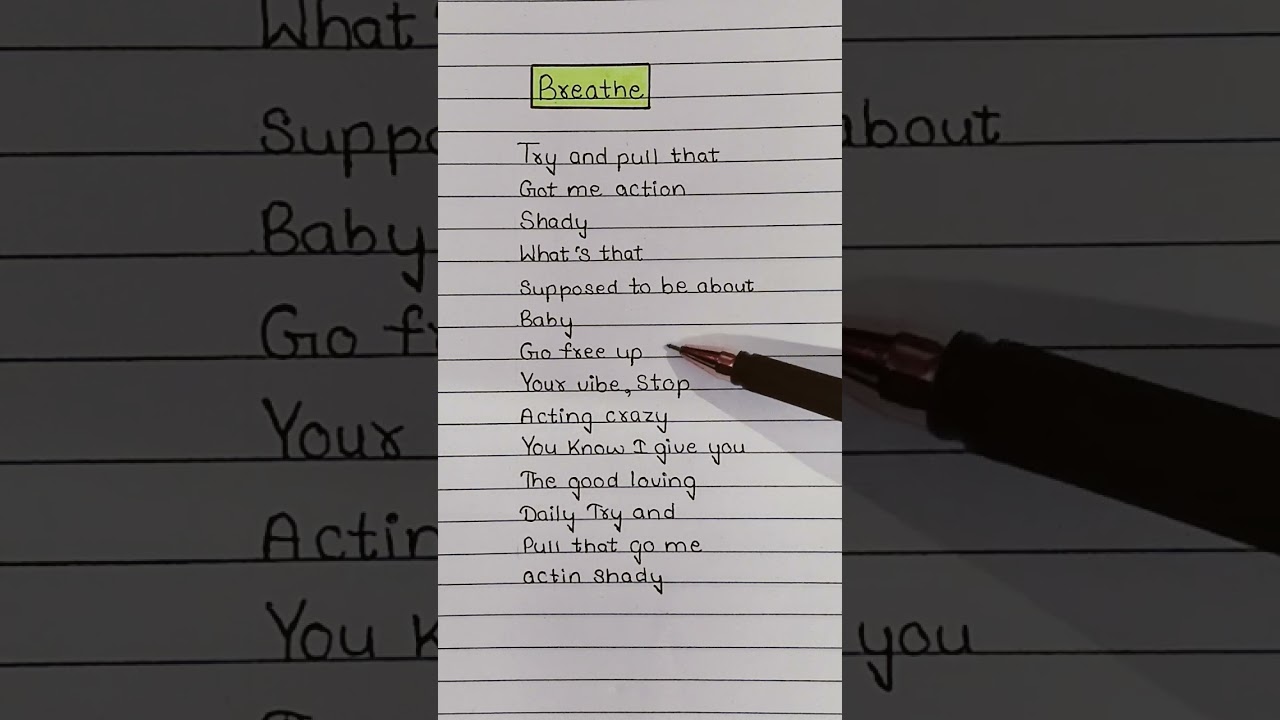 Breathe
Try and pull that
Got me action
Shady
What's that
Supposed to be about
Baby
Go free up
Your vibe, Stop
Acting crazy
You know I give you
The good loving
Daily Try and
Pull that go me
actin shady